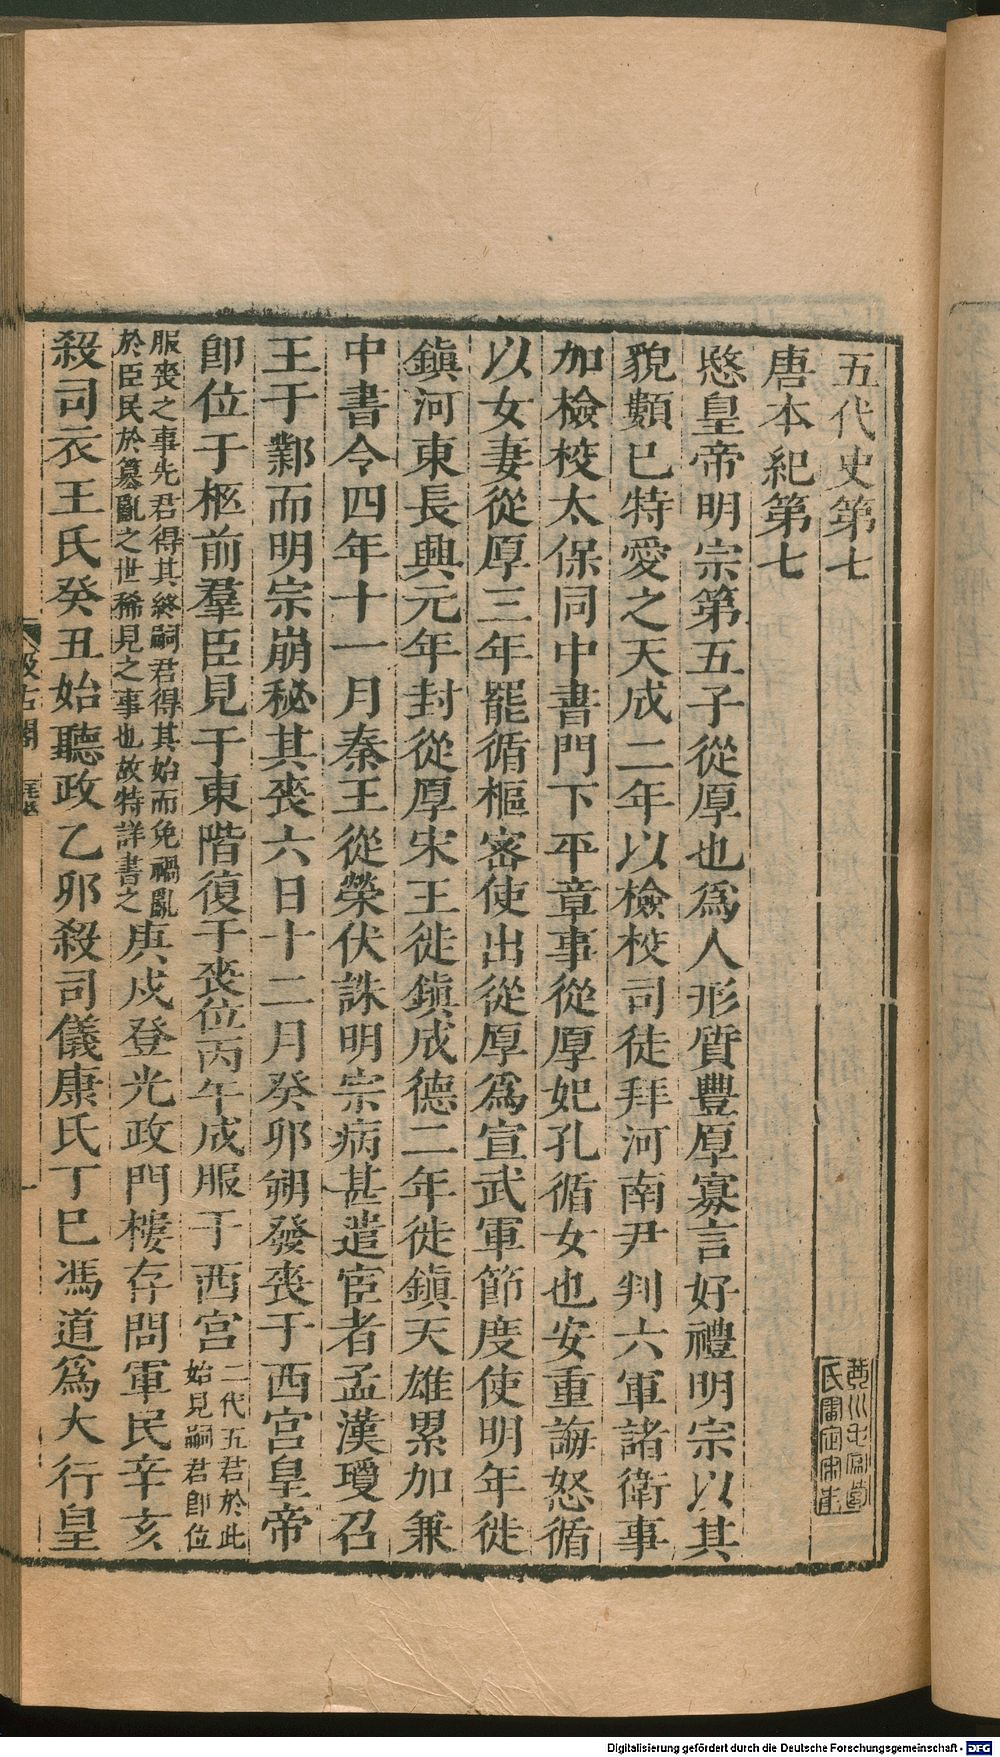 五代史第七
唐本紀第七
愍皇帝明宗第五子從厚也爲人形質豐厚寡言好禮明宗以其
貌類已特愛之天成二年以檢校司徒拜河南尹判六軍諸衛事
加檢校太保同中書門下平章事從厚妃孔循女也安重誨怒循
以女妻從厚三年罷循樞密使出從厚爲宣武軍節度使明年徙
鎮河東長興元年封從厚宋王徙鎮成德二年徙鎮天雄累加兼
中書令四年十一月秦王從榮伏誅明宗病甚遣宦者孟漢瓊召
王于鄴而明宗崩秘其喪六日十二月癸卯朔發喪于西宮皇帝
卽位于柩前羣臣見于東階復于喪位丙午成服于西宮二代五君於此
始見嗣君卽位
服喪之事先君得其終嗣君得其始而免禍亂
於臣民於篡亂之世稀見之事也故特詳書之庚戌登光政門樓存問軍民辛亥
殺司衣王氏癸丑始聽政乙卯殺司儀康氏丁巳馮道爲大行皇
Digitalisierung gefördert durch die Deutsche Forschungsgemeinschaft - DFG